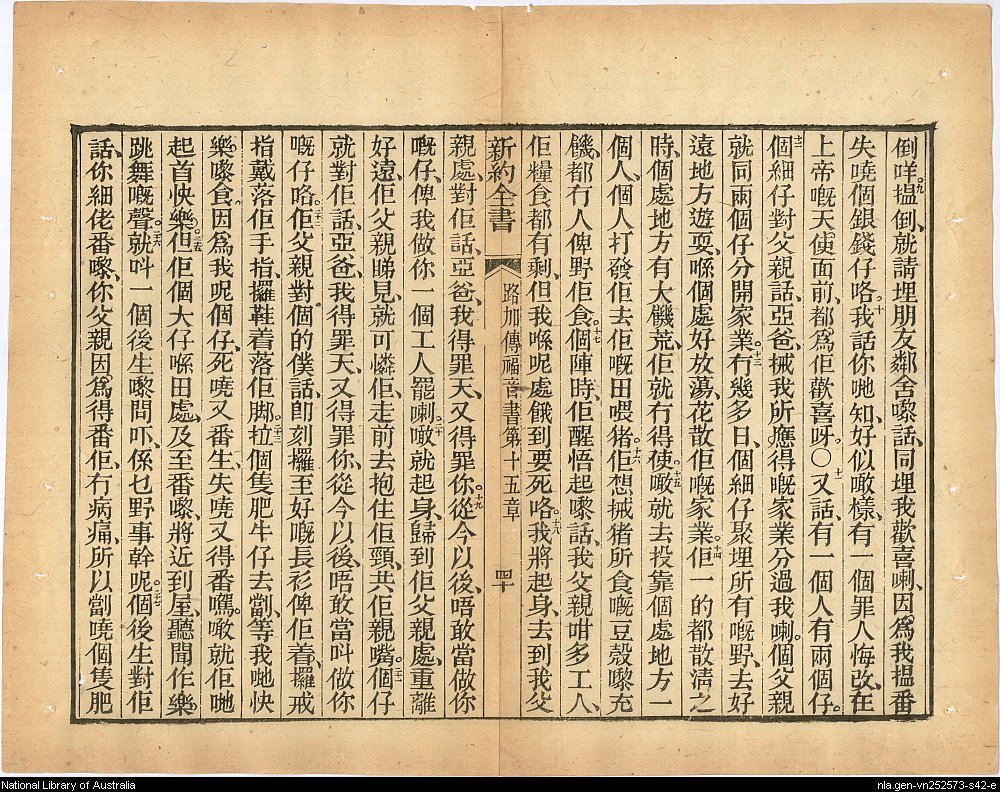 倒咩、九揾倒、就請埋朋友鄰舍嚟話、同埋我歡喜喇、因爲我揾番
失嘵個銀錢仔咯、十我話你哋知、好似噉樣、有一個罪人悔改、在
上帝嘅天使面前、都爲佢歡喜呀。○十一又話、有一個人有兩個仔。
十二個細仔對父親話、亞爸、搣我所應得嘅家業分過我喇。個父親
就同兩個仔分開家業。十三冇幾多日、個細仔聚埋所有嘅野、去好
遠地方遊耍、喺個處好放蕩、花散佢嘅家業。十四佢一的都散淸之
時、個處地方有大饑荒、佢就冇得使。十五噉就去投靠個處地方一
個人、個人打發佢去佢嘅田喂猪。十六佢想搣猪所食嘅豆殼嚟充
饑、都冇人俾野佢食。十七個陣時、佢醒悟起嚟話、我父親咁多工人、
佢糧食都有剩、但我喺呢處餓到要死咯。十八我將起身、去到我父
新約全書 路加傳福音書第十五章 四十
親處、對佢話、亞爸、我得罪天、又得罪你。十九從今以後、唔敢當做你
嘅仔、俾我做你一個工人罷喇。二十噉就起身、歸到佢父親處、重離
好遠、佢父親睇見、就可憐佢、走前去抱住佢頸、共佢親嘴。二十一個仔
就對佢話、亞爸、我得罪天、又得罪你、從今以後、唔敢當叫做你
嘅仔咯。二十二佢父親對個的僕話、卽刻攞至好嘅長衫俾佢着、攞戒
指戴落佢手指、攞鞋着落佢脚。二十三拉個隻肥牛仔去劏、等我哋快
樂嚟食。因爲我呢個仔、死嘵又番生、失嘵又得番嘅。噉就佢哋
起首快樂。二十五但佢個大仔喺田處、及至番嚟、將近到屋、聽聞作樂
跳舞嘅聲。二十六就叫一個後生嚟問吓、係乜野事幹呢。二十七個後生對佢
話、你細佬番嚟、你父親因爲得番佢、冇病痛、所以劏嘵個隻肥
National Library of Australia
nla.gen-vn252573-s42-e